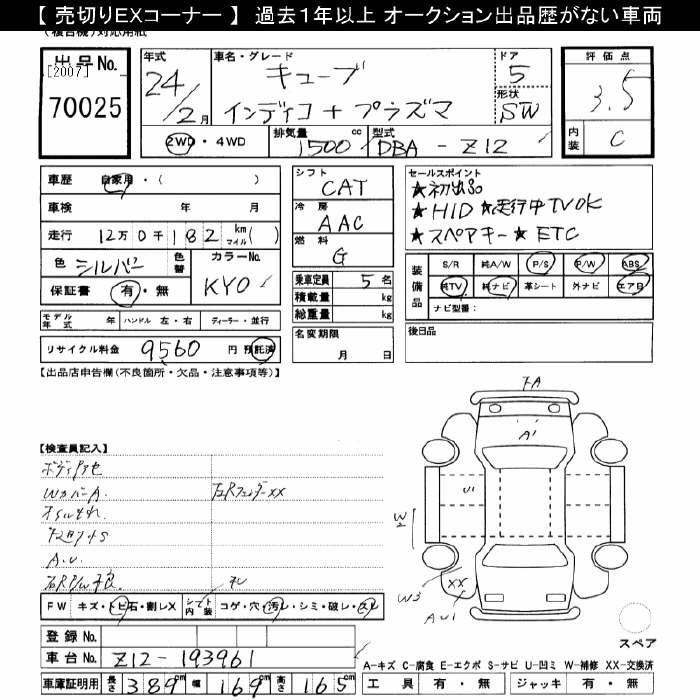 【 売切りEXコーナー 】 過去１年以上 オークション出品歴がない車両
（複合機）対応用紙
出品No.
[2007]
70025
年式
24/2月
車名・グレード
キューブ
インディゴ + プラズマ
ドア
5
形状
SW
評価点
3.5
内装
C
2WD・4WD
排気量
1500 cc
型式
DBA - Z12
車歴 自家用・（　　　）
車検 年 月
走行 12万 0千 182 km マイル ( )
色 シルバー 色替
カラーNo.
KY0
保証書 有・無
モデル年式 年 ハンドル 左・右 ディーラー・並行
リサイクル料金 9560 円 預託済
シフト
CAT
冷房
AAC
燃料
G
乗車定員 5 名
積載量 kg
総重量 kg
名変期限
月 日
セールスポイント
★初出品
★HID ★走行中TVOK
★スペアキー ★ETC
装備品
S/R 純A/W P/S P/W ABS
純TV 純ナビ 革シート 外ナビ エアB
ナビ型番：
後日品
【出品店申告欄(不良箇所・欠品・注意事項等)】
【検査員記入】
ボディアセ
Wカバー A.
左RフェンダーXX
A.U.
FW キズ・トビ石・割レX
シート内装 コゲ・穴・汚レ・シミ・破レ・スレ
登録No.
車台No. Z12-193961
車庫証明用 長さ 389 cm 幅 169 cm 高さ 165 cm
FA
A1
U1
W2
W3
XX
AU1
スペア
A-キズ C-腐食 E-エクボ S-サビ U-凹ミ W-補修 XX-交換済
工具 有・無 ジャッキ 有・無